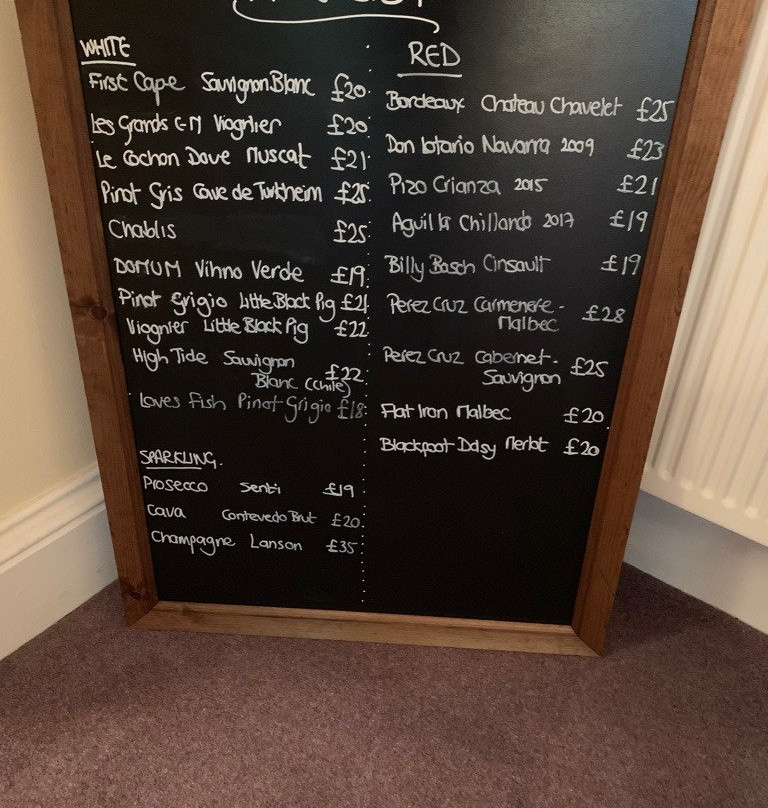 WHITE
First Cape Sauvignon Blanc £20
Les Grands G-M Viognier £20
Le Cochon Dove Muscat £21
Pinot Gris Cave de Turkheim £25
Chablis £25
DOMUM Vihno Verde £19
Pinot Grigio Little Black Pig £21
Viognier Little Black Pig £22
High Tide Sauvignon
Blanc (Chile) £22
Loves Fish Pinot Grigio £18
SPARKLING.
Prosecco Senti £19
Cava Contevedo Brut £20
Champagne Lanson £35
RED
Bordeaux Chateau Chavelet £25
Don lotario Navarra 2009 £23
Pizo Crianza 2015 £21
Aguil la Chillando 2017 £19
Billy Bosch Cinsault £19
Perez Cruz Carmenere -
Malbec £28
Perez Cruz Cabernet -
Sauvignon £25
Flat Iron Malbec £20
Blackpoot Daisy Merlot £20